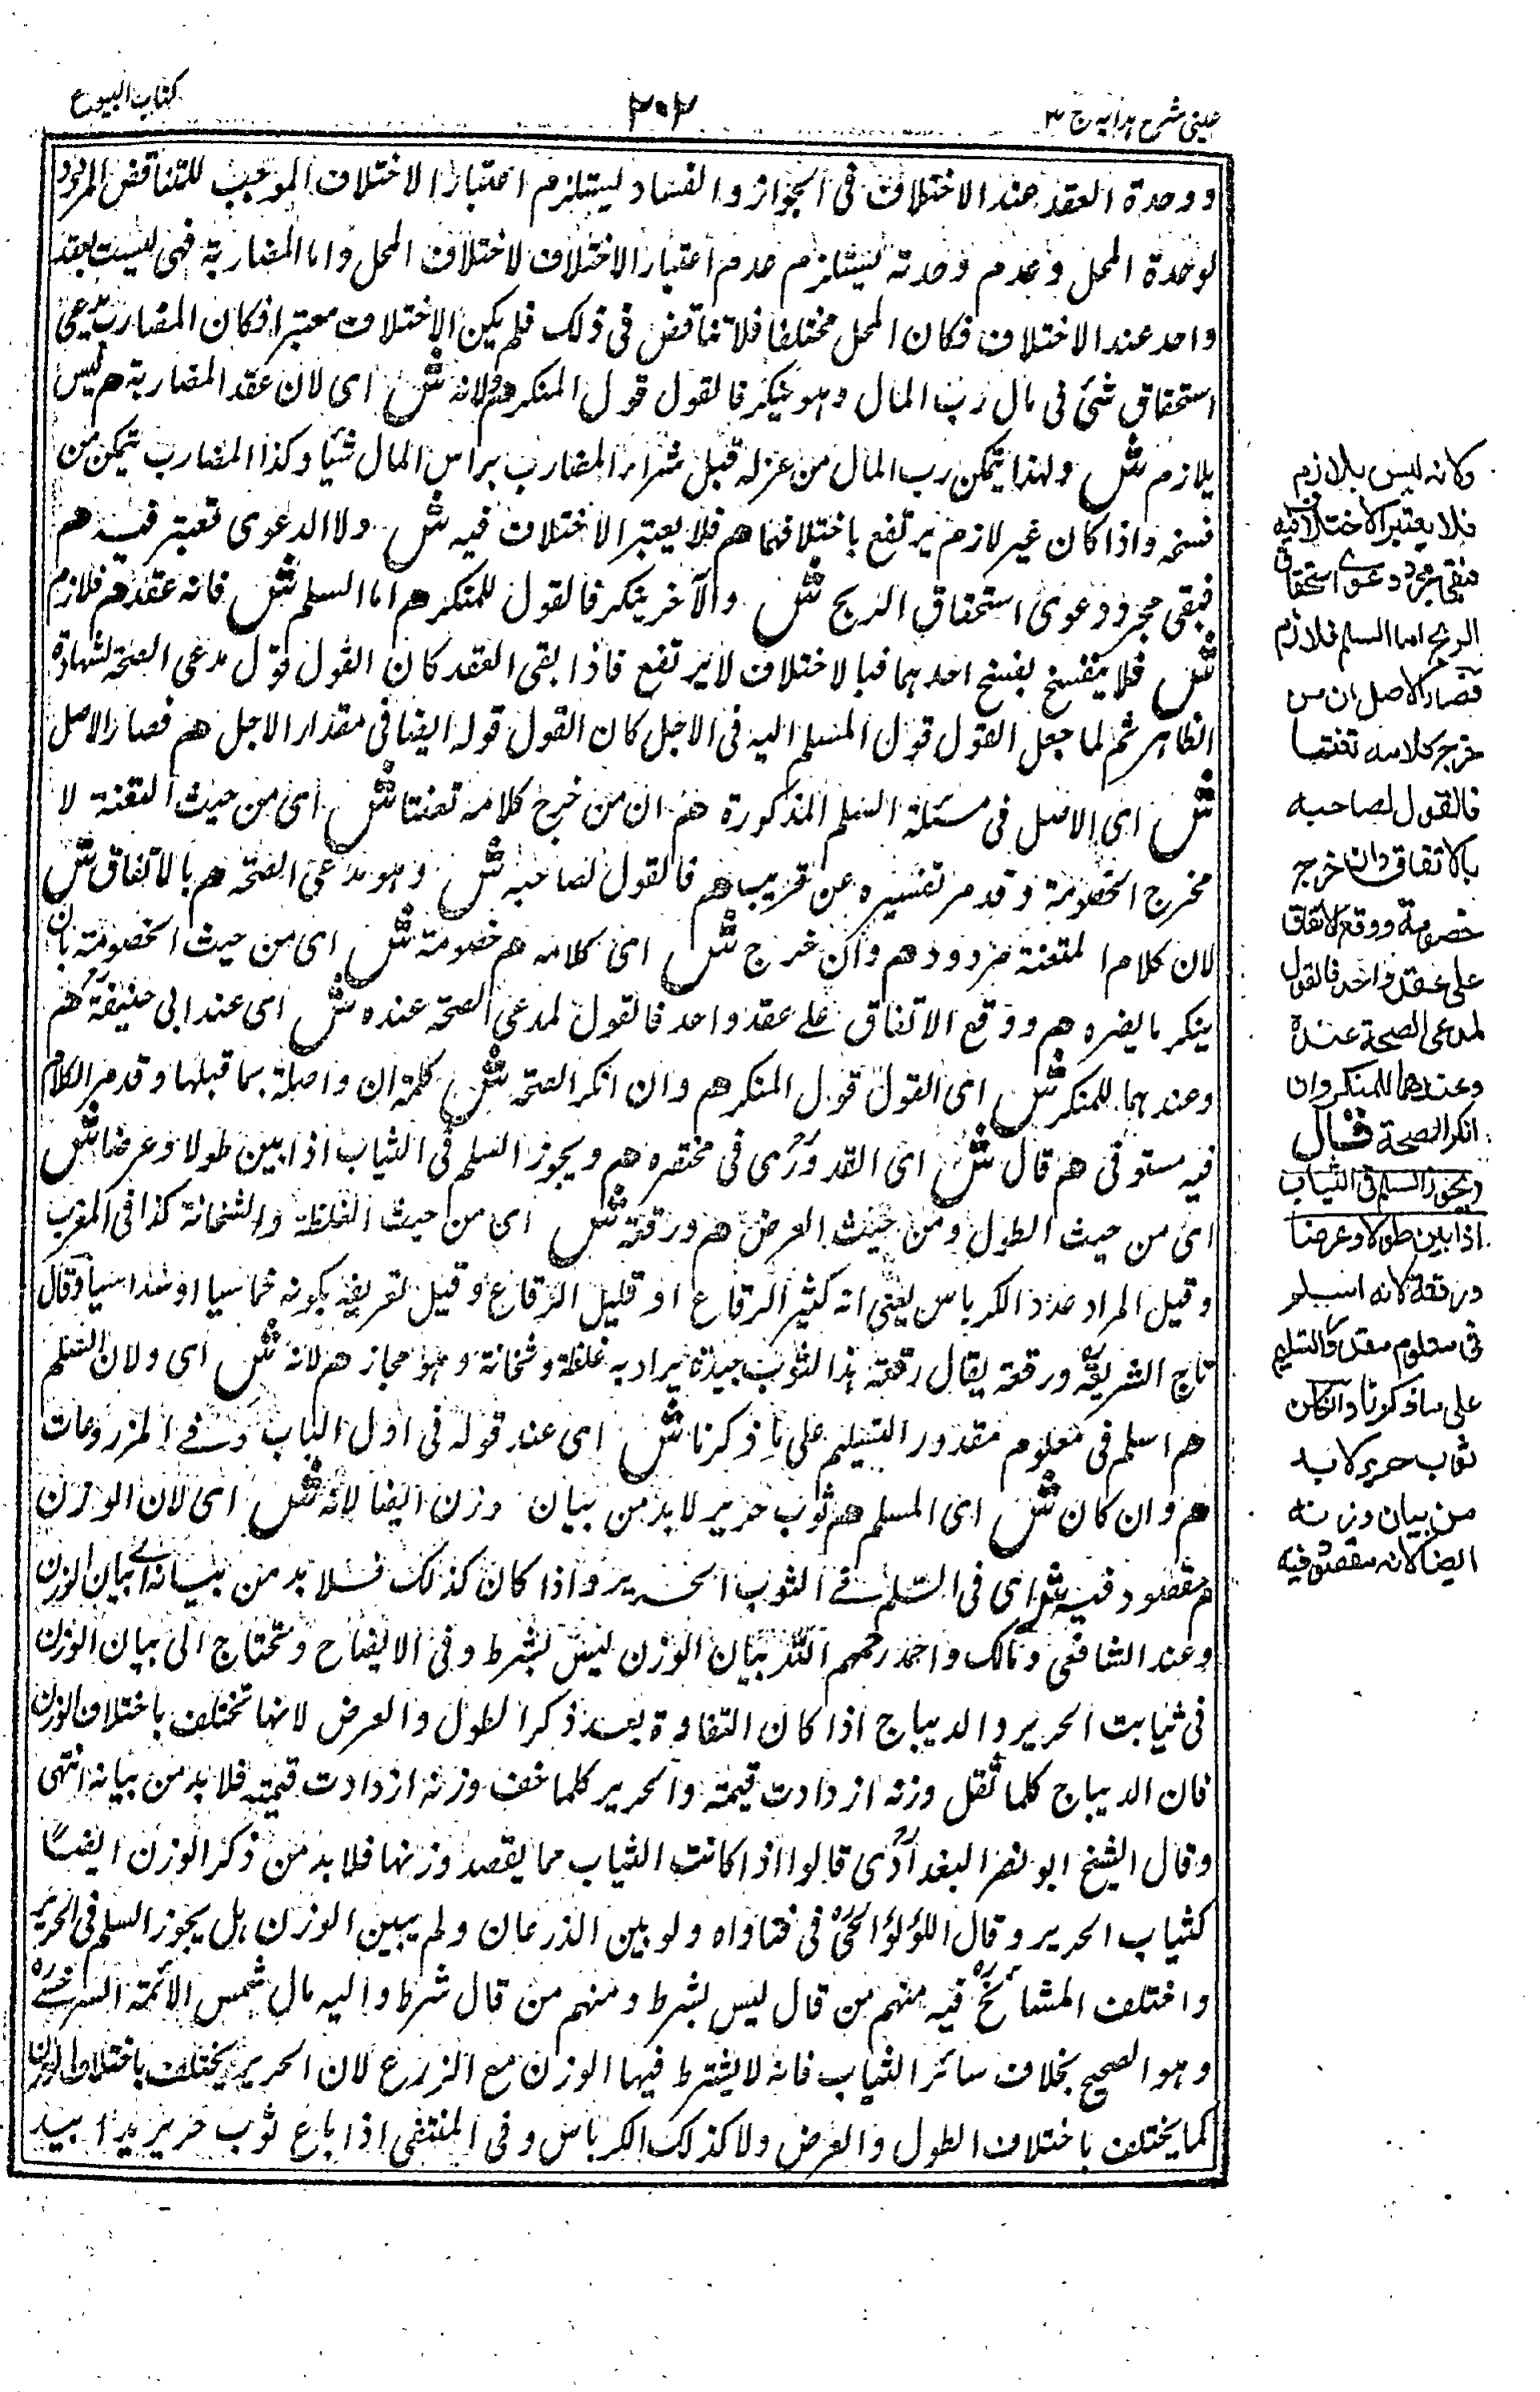 عینی شرح ہدایہ ج ۳
۲۰۲
کتاب البیوع
ووحدة العقد عند الاختلاف فی الجواز والفساد لیستلزم اعتبار الاختلاف الموجب للتناقض المردود
لوحدة المحل وعدم وحدته لیستلزم عدم اعتبار الاختلاف لاختلاف المحل واما المضاربة فهی لیست بعقد
واحد عند الاختلاف فکان المحل مختلفا فلا تناقض فی ذلک فلم یکن الاختلاف معتبرا فکان المضارب یدعی
استحقاق شئ فی مال رب المال وہو ینکر فالقول قول المنکر هم ولانه ش ای لان عقد المضاربة هم لیس
بلازم ش ولهذا یتمکن رب المال من عزله قبل شراء المضارب براس المال شیئا وکذا المضارب یتمکن من
فسخه واذا کان غیر لازم یرتفع باختلافهما هم فلا یعتبر الاختلاف فیه ش ولا الدعوی تعتبر فیه هم
فبقی مجرد دعوی استحقاق الربح ش والآخر ینکر فالقول للمنکر هم اما السلم ش فانه عقد هم فلازم
ش فلا ینفسخ بفسخ احدہما فبالاختلاف لا یرتفع فاذا بقی العقد کان القول قول مدعی الصحة لشهادة
الظاہر ثم لما جعل القول قول المسلم الیه فی الاجل کان القول قوله ایضا فی مقدار الاجل هم فصار الاصل
ش ای الاصل فی مسئلة السلم المذکورة هم ان من خرج کلامه تعنتا ش ای من حیث التعنة لا
مخرج الخصومة وقد مر تفسیره عن قریب هم فالقول لصاحبه ش وہو مدعی الصحة هم بالاتفاق ش
لان کلام المتعنة مردود هم وان خرج ش ای کلامه هم خصومة ش ای من حیث الخصومة بان
ینکر ما یضره هم ووقع الاتفاق علے عقد واحد فالقول لمدعی الصحة عنده ش ای عند ابی حنیفة هم
وعندہما للمنکر ش ای القول قول المنکر هم وان انکر الصحة ش کلمة ان واصلة بما قبلها وقد مر الکلام
فیه مستوفی هم قال ش ای القدوری فی مختصره هم ویجوز السلم فی الثیاب اذا بین طولا وعرضا ش
ای من حیث الطول ومن حیث العرض هم ورقعة ش ای من حیث الغلظة والثخانة کذا فی المغرب
وقیل المراد عدد الکرباس یعنی انه کثیر الرقاع او قلیل الرقاع وقیل تعریفه بکونه خماسیا او سداسیا وقال
تاج الشریعة ورقعة یقال رقعة ہذا الثوب جیدة یراد به غلظة وثخانة وہو مجاز هم لانه ش ای ولان السلم
هم اسلم فی معلوم مقدور التسلیم علی ما ذکرنا ش ای عند قوله فی اول الباب وفے المزروعات
هم وان کان ش ای المسلم هم ثوب حریر لا بد من بیان وزن ایضا لانه ش ای لان الوزن
هم مقصود فیه ش ای فی السلم فے الثوب الحریر واذا کان کذلک فلا بد من بیانه ای بیان الوزن
وعند الشافعی ومالک واحمد رحمهم الله بیان الوزن لیس بشرط وفی الایضاح ویحتاج الی بیان الوزن
فی ثیاب الحریر والدیباج اذا کان التفاوة بعد ذکر الطول والعرض لانها تختلف باختلاف الوزن
فان الدیباج کلما ثقل وزنه ازدادت قیمته والحریر کلما خف وزنه ازدادت قیمته فلا بد من بیانه انتهی
وقال الشیخ ابو نصر البغدادی قالوا اذا کانت الثیاب مما یقصد وزنها فلا بد من ذکر الوزن ایضا
کثیاب الحریر وقال اللؤلؤالحی فی فتاواه ولو بین الذرعان ولم یبین الوزن ہل یجوز السلم فی الحریر
واختلف المشائخ فیه منهم من قال لیس بشرط ومنهم من قال شرط والیه مال شمس الائمة السرخسے
وہو الصحیح بخلاف سائر الثیاب فانه لا یشترط فیها الوزن مع الزرع لان الحریر یختلف باختلاف الوزن
کما یختلف باختلاف الطول والعرض ولا کذلک الکرباس وفی المنتقی اذا باع ثوب حریر یدا بید
ولانه لیس بلازم
فلا یعتبر الاختلاف فیه
فبقی مجرد دعوے استحقاق
الربح اما السلم فلازم
فصار الاصل ان من
خرج کلامه تعنتا
فالقول لصاحبه
بالاتفاق وان خرج
خصومة ووقع الاتفاق
علی عقد واحد فالقول
لمدعی الصحة عنده
وعندهما للمنکر وان
انکر الصحة قال
ویجوز السلم فی الثیاب
اذا بین طولا وعرضا
ورقعة لانه اسلم
فی معلوم مقدور التسلیم
علی ما ذکرنا وان کان
ثوب حریر لا بد
من بیان وزنه
ایضا لانه مقصود فیه